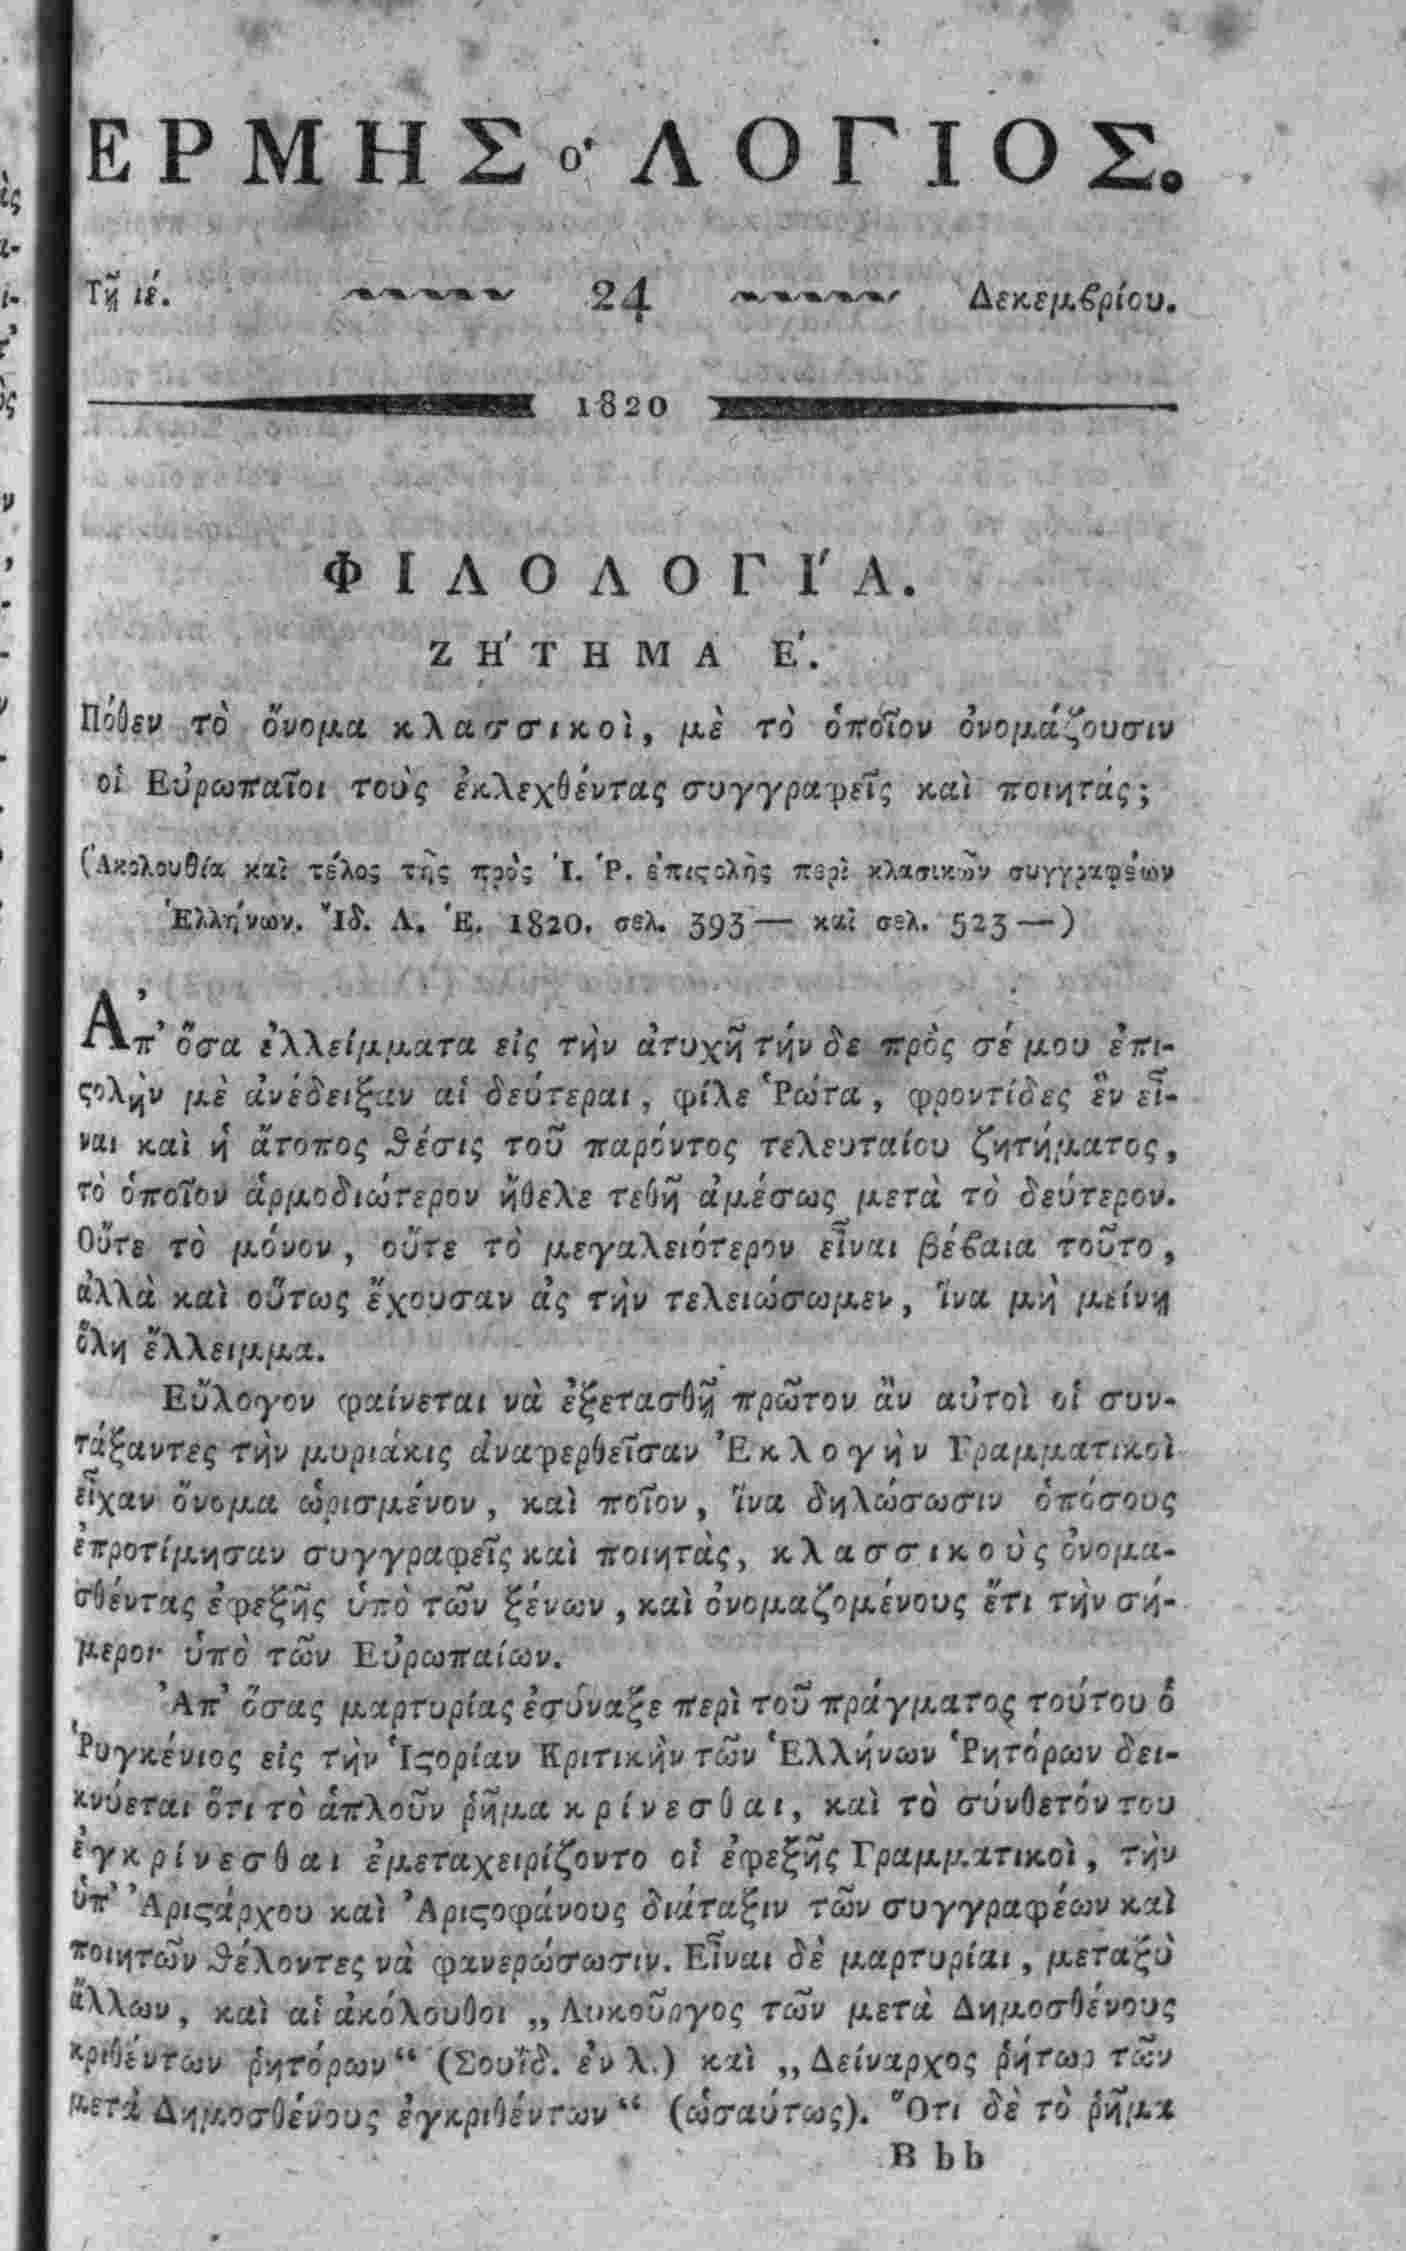 ΕΡΜΗΣ ο῾ ΛΟΓΙΟΣ.
Τῇ ιέ. 24 Δεκεμβρίου.
1820
ΦΙΛΟΛΟΓΙ΄Α.
ΖΗ΄ΤΗΜΑ Ε΄.
Πόθεν τὸ ὄνομα κλασσικοὶ, μὲ τὸ ὁποῖον ὀνομάζουσιν
οἱ Εὐρωπαῖοι τοὺς ἐκλεχθέντας συγγραφεῖς καὶ ποιητάς;
(Ἀκολουθία καὶ τέλος τῆς πρὸς Ἰ. Ῥ. ἐπιϛολῆς περὶ κλασικῶν συγγραφέων
Ἑλλήνων. Ἴδ. Λ. Ἑ. 1820. σελ. 393— καὶ σελ. 523—)
Ἀπ' ὅσα ἐλλείμματα εἰς τὴν ἀτυχῆ τήνδε πρὸς σέ μου ἐπι-
ϛολὴν μὲ ἀνέδειξαν αἱ δεύτεραι, φίλε Ῥώτα, φροντίδες ἓν εἶ-
ναι καὶ ἡ ἄτοπος θέσις τοῦ παρόντος τελευταίου ζητήματος,
τὸ ὁποῖον ἁρμοδιώτερον ἤθελε τεθῆ ἀμέσως μετὰ τὸ δεύτερον.
Οὔτε τὸ μόνον, οὔτε τὸ μεγαλειότερον εἶναι βέβαια τοῦτο,
ἀλλὰ καὶ οὕτως ἔχουσαν ἂς τὴν τελειώσωμεν, ἵνα μὴ μείνῃ
ὅλη ἔλλειμμα.
Εὔλογον φαίνεται νὰ ἐξετασθῇ πρῶτον ἂν αὐτοὶ οἱ συν-
τάξαντες τὴν μυριάκις ἀναφερθεῖσαν Ἐκλογὴν Γραμματικοὶ
εἶχαν ὄνομα ὡρισμένον, καὶ ποῖον, ἵνα δηλώσωσιν ὁπόσους
ἐπροτίμησαν συγγραφεῖς καὶ ποιητὰς, κλασσικοὺς ὀνομα-
σθέντας ἐφεξῆς ὑπὸ τῶν ξένων, καὶ ὀνομαζομένους ἔτι τὴν σή-
μερον ὑπὸ τῶν Εὐρωπαίων.
Ἀπ' ὅσας μαρτυρίας ἐσύναξε περὶ τοῦ πράγματος τούτου ὁ
Ῥυγκένιος εἰς τὴν Ἱϛορίαν Κριτικὴν τῶν Ἑλλήνων Ῥητόρων δει-
κνύεται ὅτι τὸ ἁπλοῦν ῥῆμα κρίνεσθαι, καὶ τὸ σύνθετόν του
ἐγκρίνεσθαι ἐμεταχειρίζοντο οἱ ἐφεξῆς Γραμματικοὶ, τὴν
ὑπ' Ἀριϛάρχου καὶ Ἀριϛοφάνους διάταξιν τῶν συγγραφέων καὶ
ποιητῶν θέλοντες νὰ φανερώσωσιν. Εἶναι δὲ μαρτυρίαι, μεταξὺ
ἄλλων, καὶ αἱ ἀκόλουθοι „Λυκοῦργος τῶν μετὰ Δημοσθένους
κριθέντων ῥητόρων“ (Σουΐδ. ἐν λ.) καὶ „Δείναρχος ῥήτωρ τῶν
μετὰ Δημοσθένους ἐγκριθέντων“ (ὡσαύτως). Ὅτι δὲ τὸ ῥῆμα
Bbb